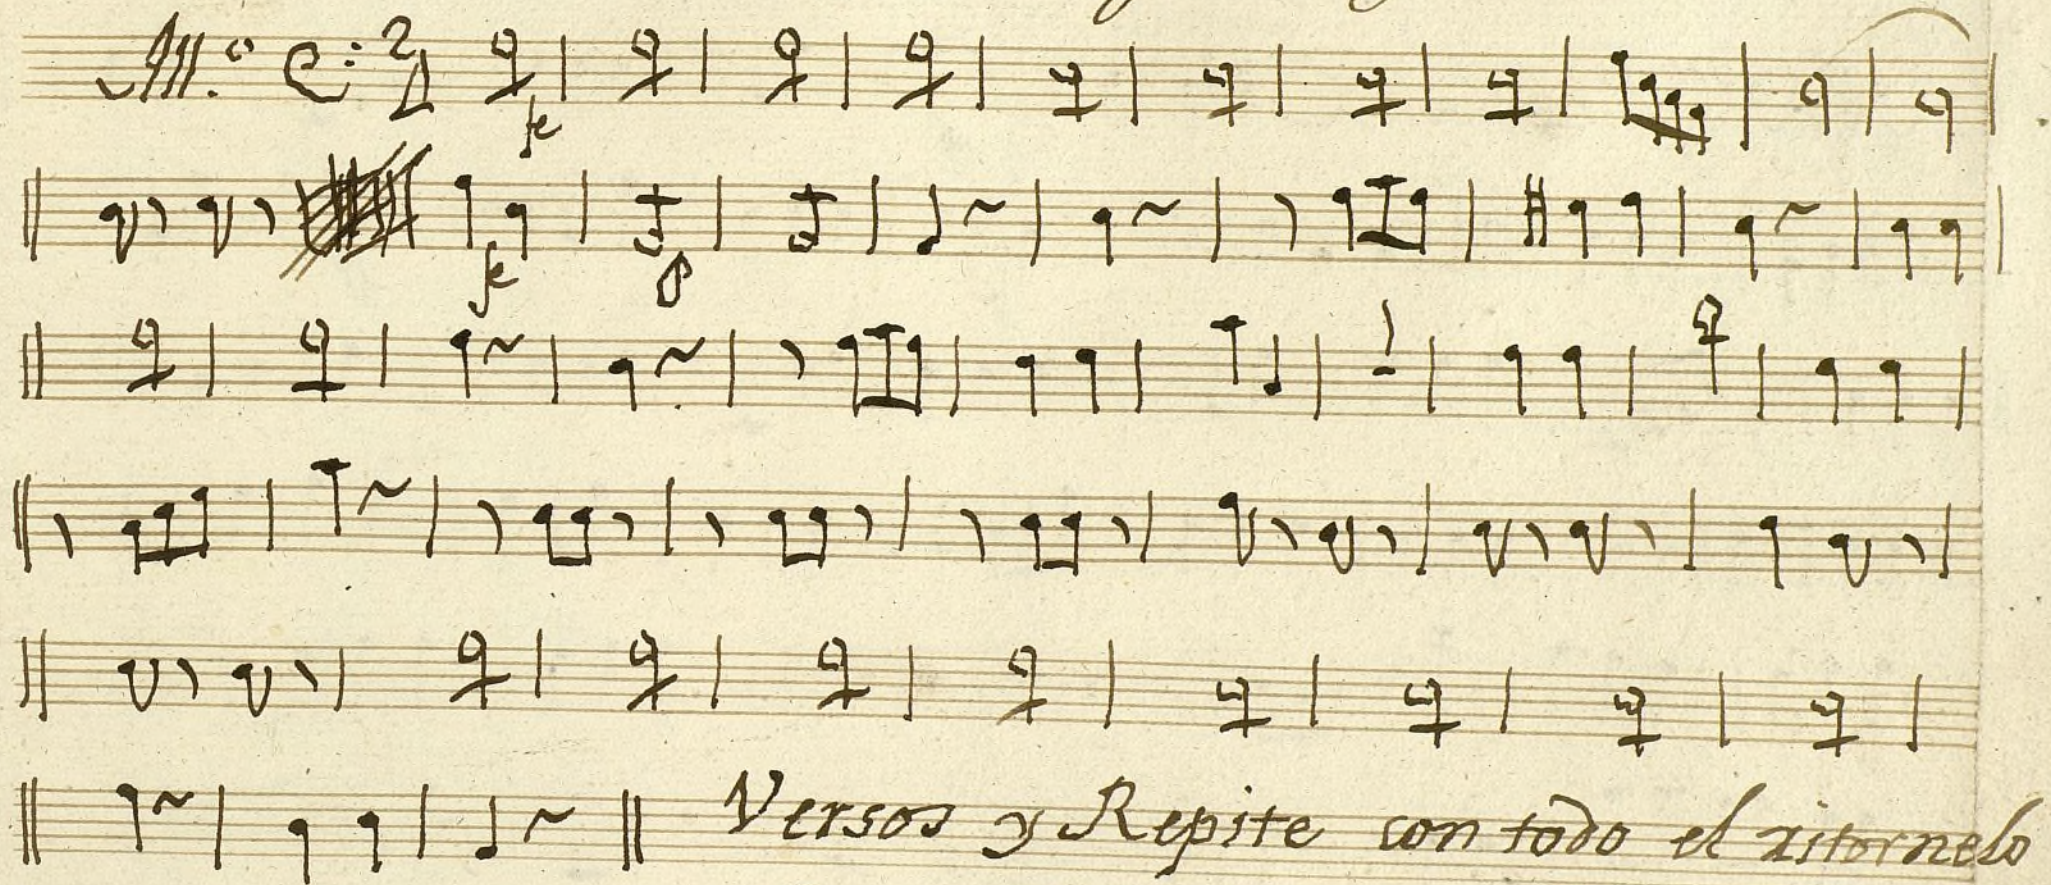 All.º
fe
fe P
Versos y Repite con todo el ritornelo